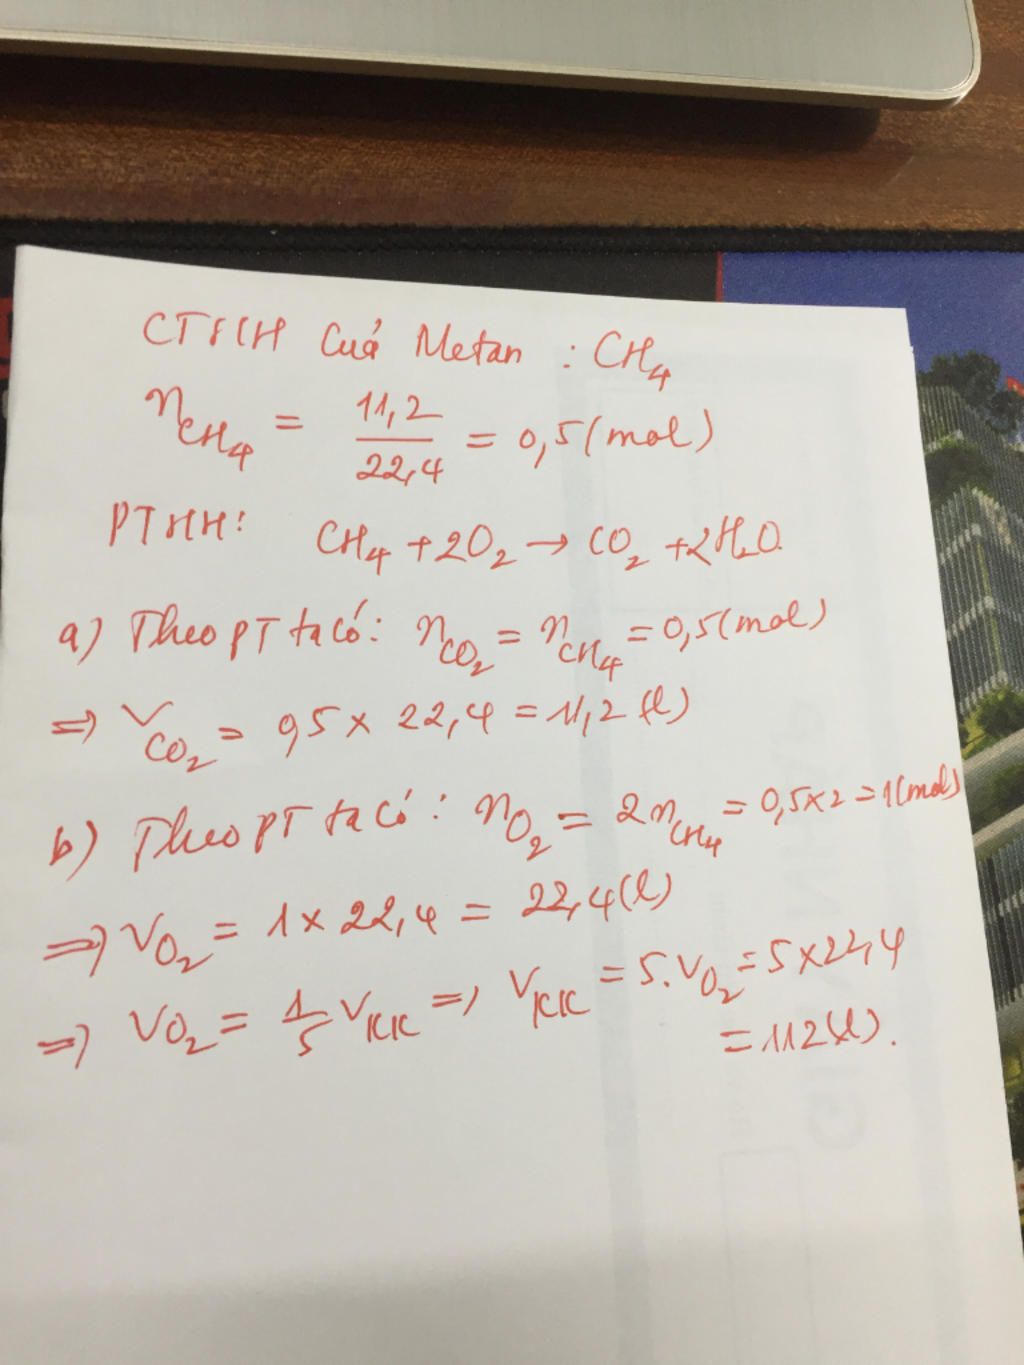 CTHH Của Metan : CH₄
n_CH₄ = 11,2/22,4 = 0,5 (mol)
PTHH: CH₄ + 2O₂ → CO₂ + 2H₂O.
a) Theo PT ta có: n_CO₂ = n_CH₄ = 0,5 (mol)
=> V_CO₂ = 0,5 x 22,4 = 11,2 (l)
b) Theo PT ta có: n_O₂ = 2n_CH₄ = 0,5x2 = 1 (mol)
=> V_O₂ = 1 x 22,4 = 22,4 (l)
=> V_O₂ = 1/5 V_KK => V_KK = 5.V_O₂ = 5 x 22,4
= 112 (l).